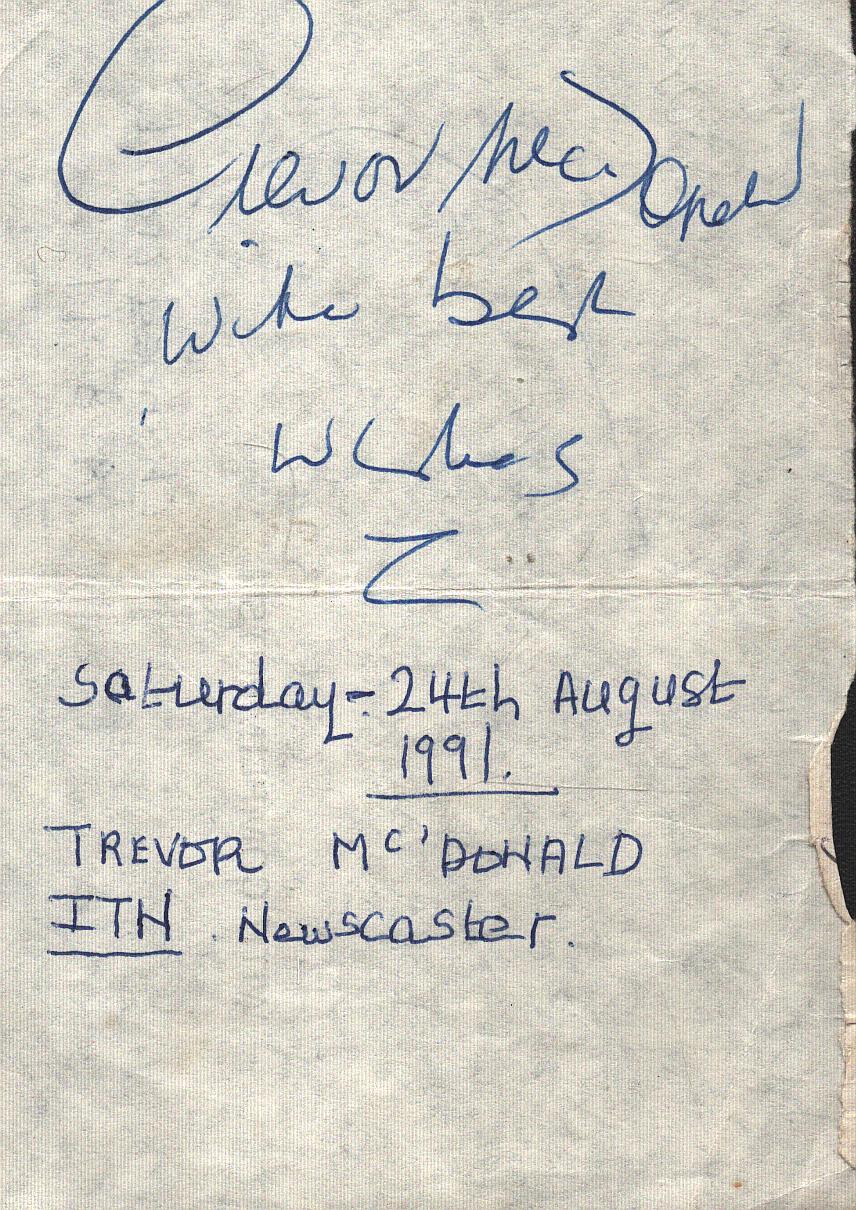 Trevor McDonald
With best
Wishes
Saturday - 24th August
1991.
TREVOR Mc'DONALD
ITN. Newscaster.